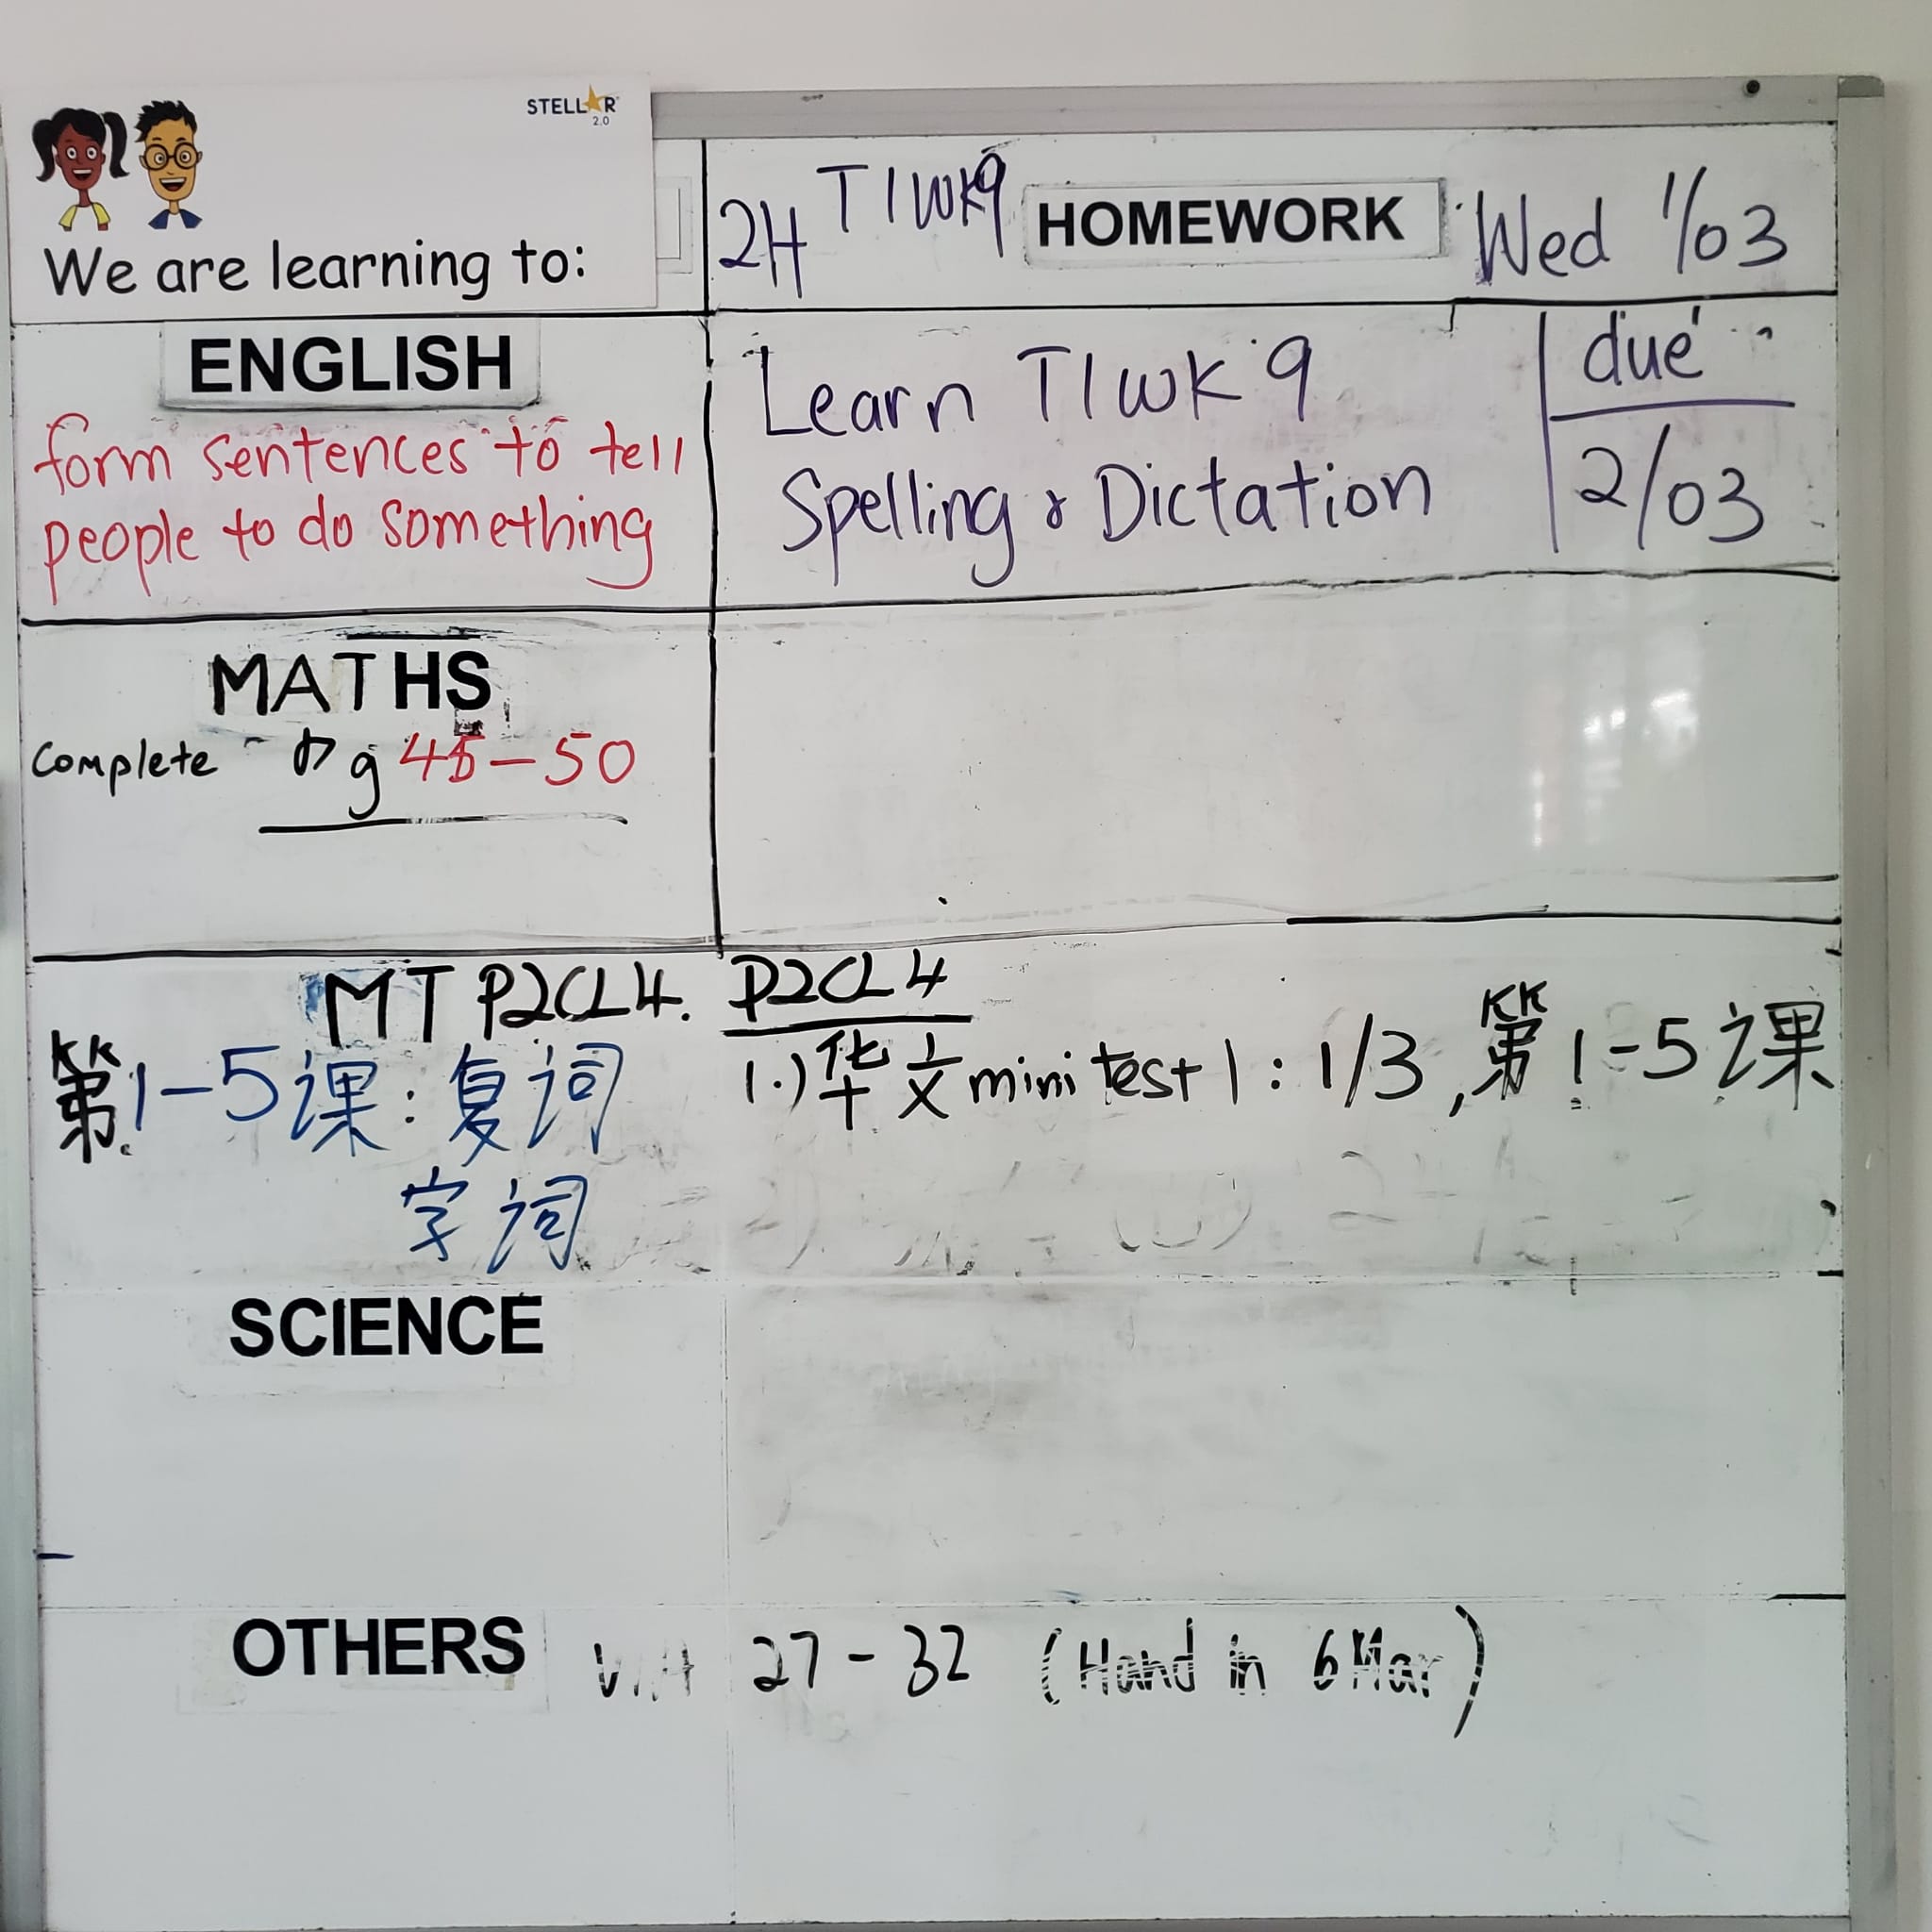 STELLAR 2.0
We are learning to:
2H T1WK9 HOMEWORK Wed 1/03
ENGLISH
form sentences to tell
people to do something
Learn T1WK 9
Spelling & Dictation
due
2/03
MATHS
Complete pg 45-50
MT P2CL4.
第1-5课:复词
字词
P2CL4
1.) 华文 mini test 1 : 1/3, 第1-5课
SCIENCE
OTHERS
27-32 (Hand in 6 Mar)